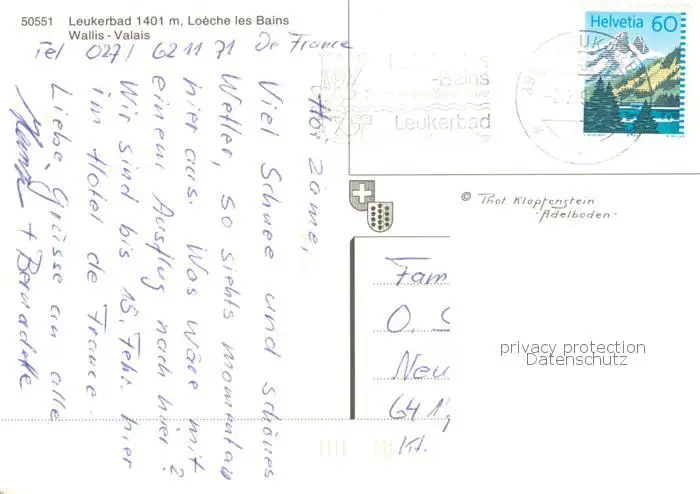 50551 Leukerbad 1401 m, Loèche les Bains
Wallis - Valais
Tel 027/ 62 11 71 De France
Hoi Zäme,
Viel Schnee und schönes
Wetter, so siehts momentan
hier aus. Was wäre mit
einem Ausflug nach hier?
Wir sind bis 15. Febr. hier
im Hotel de France.
Liebe Grüsse an alle
+ Bernadette
Helvetia 60
-Bains
Leukerbad
© Phot. Klopfenstein
-Adelboden-
Fam
O.
Neu
641
Kt.
privacy protection
Datenschutz